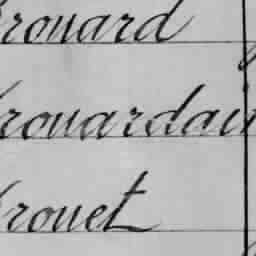 rouard
rouardain
rouet